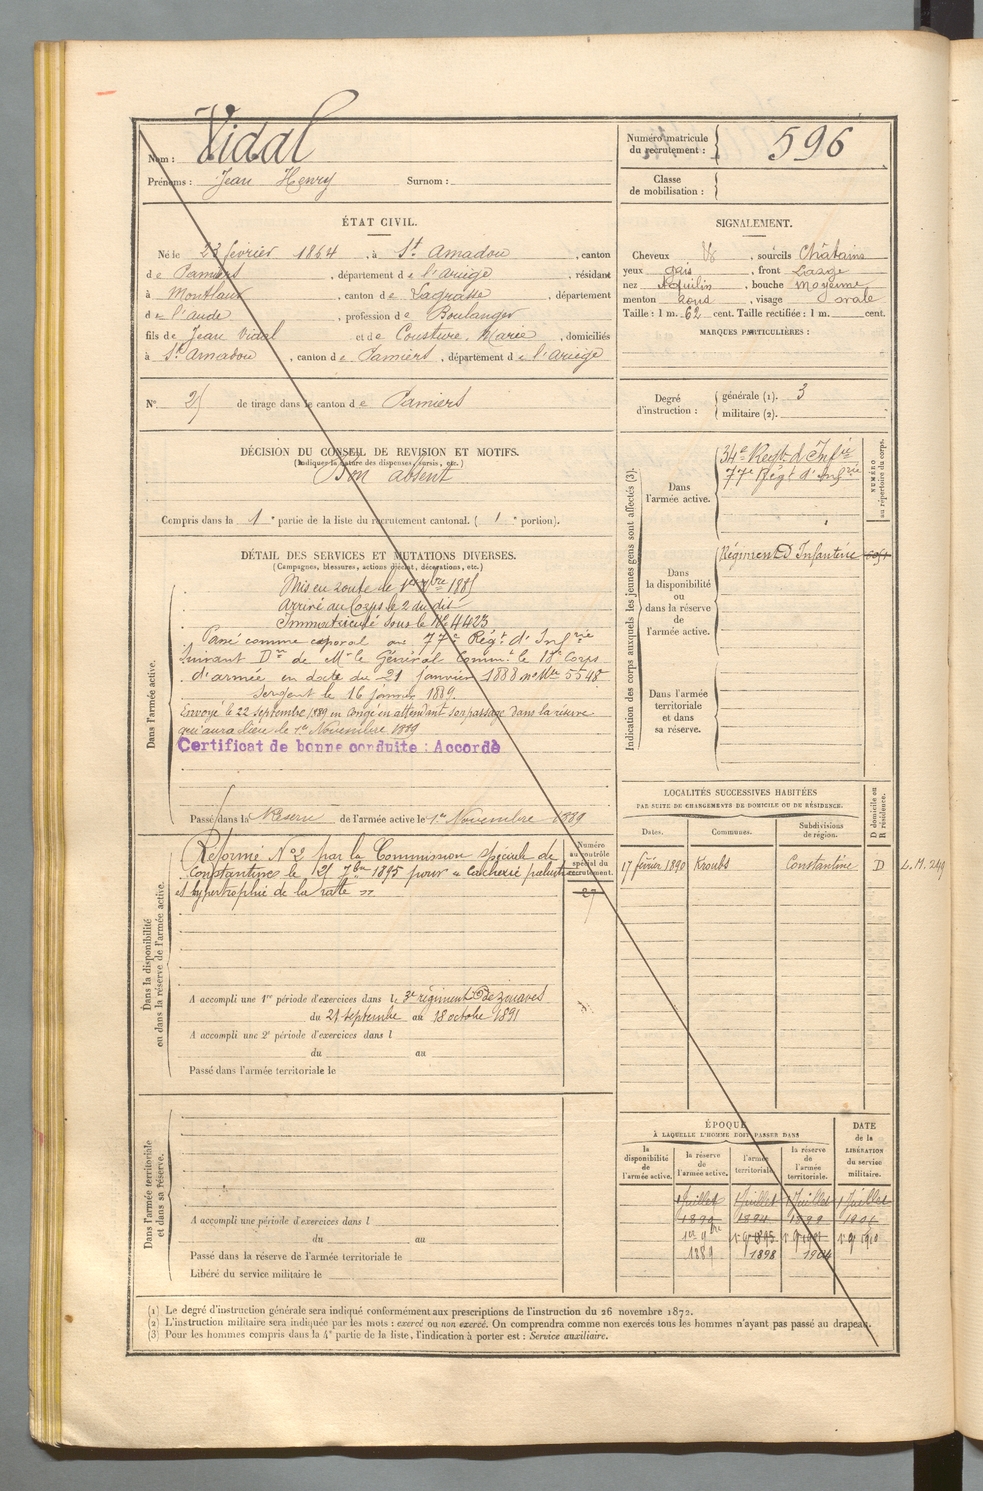 Nom : Vidal
Prénoms : Jean Henry Surnom :
Numéro matricule du recrutement : 596
Classe de mobilisation :
ÉTAT CIVIL.
Né le 23 février 1864, à St. Amadou, canton
de Pamiers, département de l'ariège, résidant
à Montlaur, canton de Lagrasse, département
de l'aude, profession de Boulanger
fils de Jean Vidal et de Cousture, Marie, domiciliés
à St. Amadou, canton de Pamiers, département de l'ariège
SIGNALEMENT.
Cheveux , sourcils Châtains
yeux gris, front Large
nez Aquilin, bouche moyenne
menton rond, visage ovale
Taille : 1 m. 62 cent. Taille rectifiée : 1 m. cent.
MARQUES PARTICULIÈRES :
N° 25 de tirage dans le canton de Pamiers
Degré d'instruction : générale (1). 3
militaire (2).
DÉCISION DU CONSEIL DE REVISION ET MOTIFS.
(Indiquer la nature des dispenses, sursis, etc.)
Bon absent
Compris dans la 1e partie de la liste du recrutement cantonal. ( 1e portion).
DÉTAIL DES SERVICES ET MUTATIONS DIVERSES.
(Campagnes, blessures, actions d'éclat, décorations, etc.)
Dans l'armée active.
Mis en route le 1er Xbre 1885
Arrivé au Corps le 2 du dit
Immatriculé sous le No 4423
Passé comme caporal au 77e Régt d'Infrie
Suivant Don de Mr le Général Commt le 18e Corps
d'armée en date du 21 janvier 1888 no Mle 5548
Sergent le 16 janvier 1889.
Envoyé le 22 septembre 1889 en congé en attendant son passage dans la réserve
qui aura lieu le 1er Novembre 1889
Certificat de bonne conduite : Accordé
Passé dans la Réserve de l'armée active le 1er Novembre 1889
Indication des corps auxquels les jeunes gens sont affectés (3).
NUMÉRO au répertoire du corps.
Dans l'armée active.
34e Régt d'Infie
77e Régt d'Infrie
Dans la disponibilité ou dans la réserve de l'armée active.
Régiment D Infanterie
Dans l'armée territoriale et dans sa réserve.
LOCALITÉS SUCCESSIVES HABITÉES
PAR SUITE DE CHANGEMENTS DE DOMICILE OU DE RÉSIDENCE.
Dates. Communes. Subdivisions de région. D domicile ou R résidence.
17 février 1890 Kroubs Constantine D L.M. 249
Dans la disponibilité ou dans la réserve de l'armée active.
Numéro au contrôle spécial du recrutement.
27
Réformé No 2 par la Commission spéciale de
Constantine le 25 7bre 1895 pour « cachexie palustre
et hypertrophie de la ratte »
A accompli une 1re période d'exercices dans le 3e régiment de zouaves
du 21 septembre au 18 octobre 1891
A accompli une 2e période d'exercices dans l
du au
Passé dans l'armée territoriale le
Dans l'armée territoriale et dans sa réserve.
A accompli une période d'exercices dans l
du au
Passé dans la réserve de l'armée territoriale le
Libéré du service militaire le
ÉPOQUE
À LAQUELLE L'HOMME DOIT PASSER DANS
la disponibilité de l'armée active. la réserve de l'armée active. l'armée territoriale. la réserve de l'armée territoriale.
DATE de la LIBÉRATION du service militaire.
1 Juillet 1 Juillet 1 Juillet 1 Juillet
1er 9bre
1889 1898 1904
(1) Le degré d'instruction générale sera indiqué conformément aux prescriptions de l'instruction du 26 novembre 1872.
(2) L'instruction militaire sera indiquée par les mots : exercé ou non exercé. On comprendra comme non exercés tous les hommes n'ayant pas passé au drapeau.
(3) Pour les hommes compris dans la 4e partie de la liste, l'indication à porter est : Service auxiliaire.